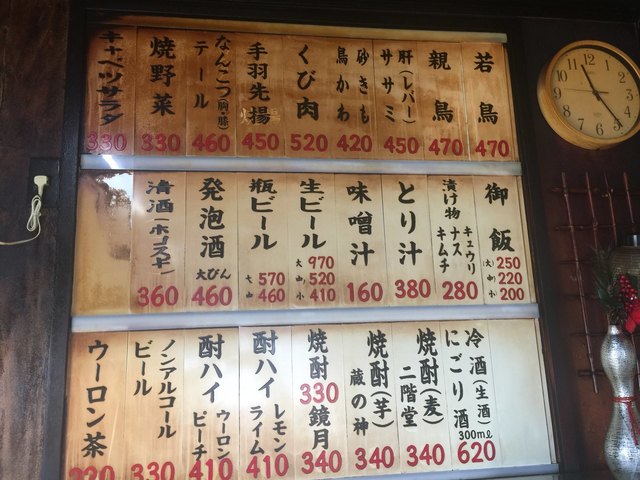 若鳥 470
親鳥 470
肝(レバー) ササミ 450
砂きも 鳥かわ 420
くび肉 520
手羽先揚 450
なんこつ(胸・膝) テール 460
焼野菜 330
キャベツサラダ 330
御飯 (大)250 (中)220 (小)200
漬け物 キュウリ ナス キムチ 280
とり汁 380
味噌汁 160
生ビール 大970 中520 小410
瓶ビール 大570 中460
発泡酒 大びん 460
清酒 360
冷酒(生酒) にごり酒 300mℓ 620
焼酎(麦) 二階堂 340
焼酎(芋) 蔵の神 340
焼酎 330 鏡月 340
酎ハイ レモン ライム 410
酎ハイ ウーロン ピーチ 410
ノンアルコール ビール 330
ウーロン茶 220